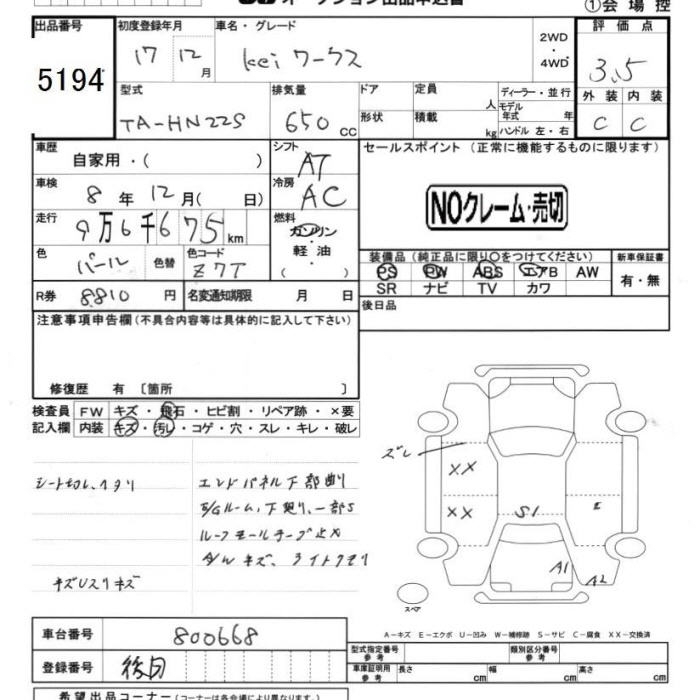 オークション出品申込書
①会場控
出品番号
5194
初度登録年月
17 12月
車名・グレード
Kei ワークス
2WD
・
4WD
評価点
3.5
外装 内装
C C
型式
TA-HN22S
排気量
650cc
ドア
形状
定員 人
積載 kg
ディーラー・並行
モデル年式 年
ハンドル 左・右
車歴
自家用・( )
シフト
AT
車検
8年12月( 日)
冷房
AC
走行
9万6千675km
燃料
ガソリン
・
軽油
・
( )
色
パール
色替
色コード
Z7T
R券 8810円
名変通知期限 月 日
セールスポイント(正常に機能するものに限ります)
NOクレーム・売切
装備品(純正品に限り○をつけてください)
PS PW ABS エアB AW
SR ナビ TV カワ
新車保証書
有・無
後日品
注意事項申告欄(不具合内容等は具体的に記入して下さい)
修復歴 有 〔箇所 〕
検査員記入欄
FW キズ・飛石・ヒビ割・リペア跡・×要
内装 キズ・汚し・コゲ・穴・スレ・キレ・破レ
シート切レ、ヘタリ
キズUスリキズ
エンドパネル下部曲り
E/Gルーム、下廻り、一部S
ルーフモールテープ止メ
A/Wキズ、ライトクモリ
ズレ
XX
XX
S1
E
A1
A2
スペア
A−キズ E−エクボ U−凹み W−補修跡 S−サビ C−腐食 XX−交換済
車台番号 800668
登録番号 後日
型式指定番号 参考
類別区分番号 参考
車庫証明用 参考
長さ cm 幅 cm 高さ cm
希望出品コーナー(コーナーは各会場により異なります。)